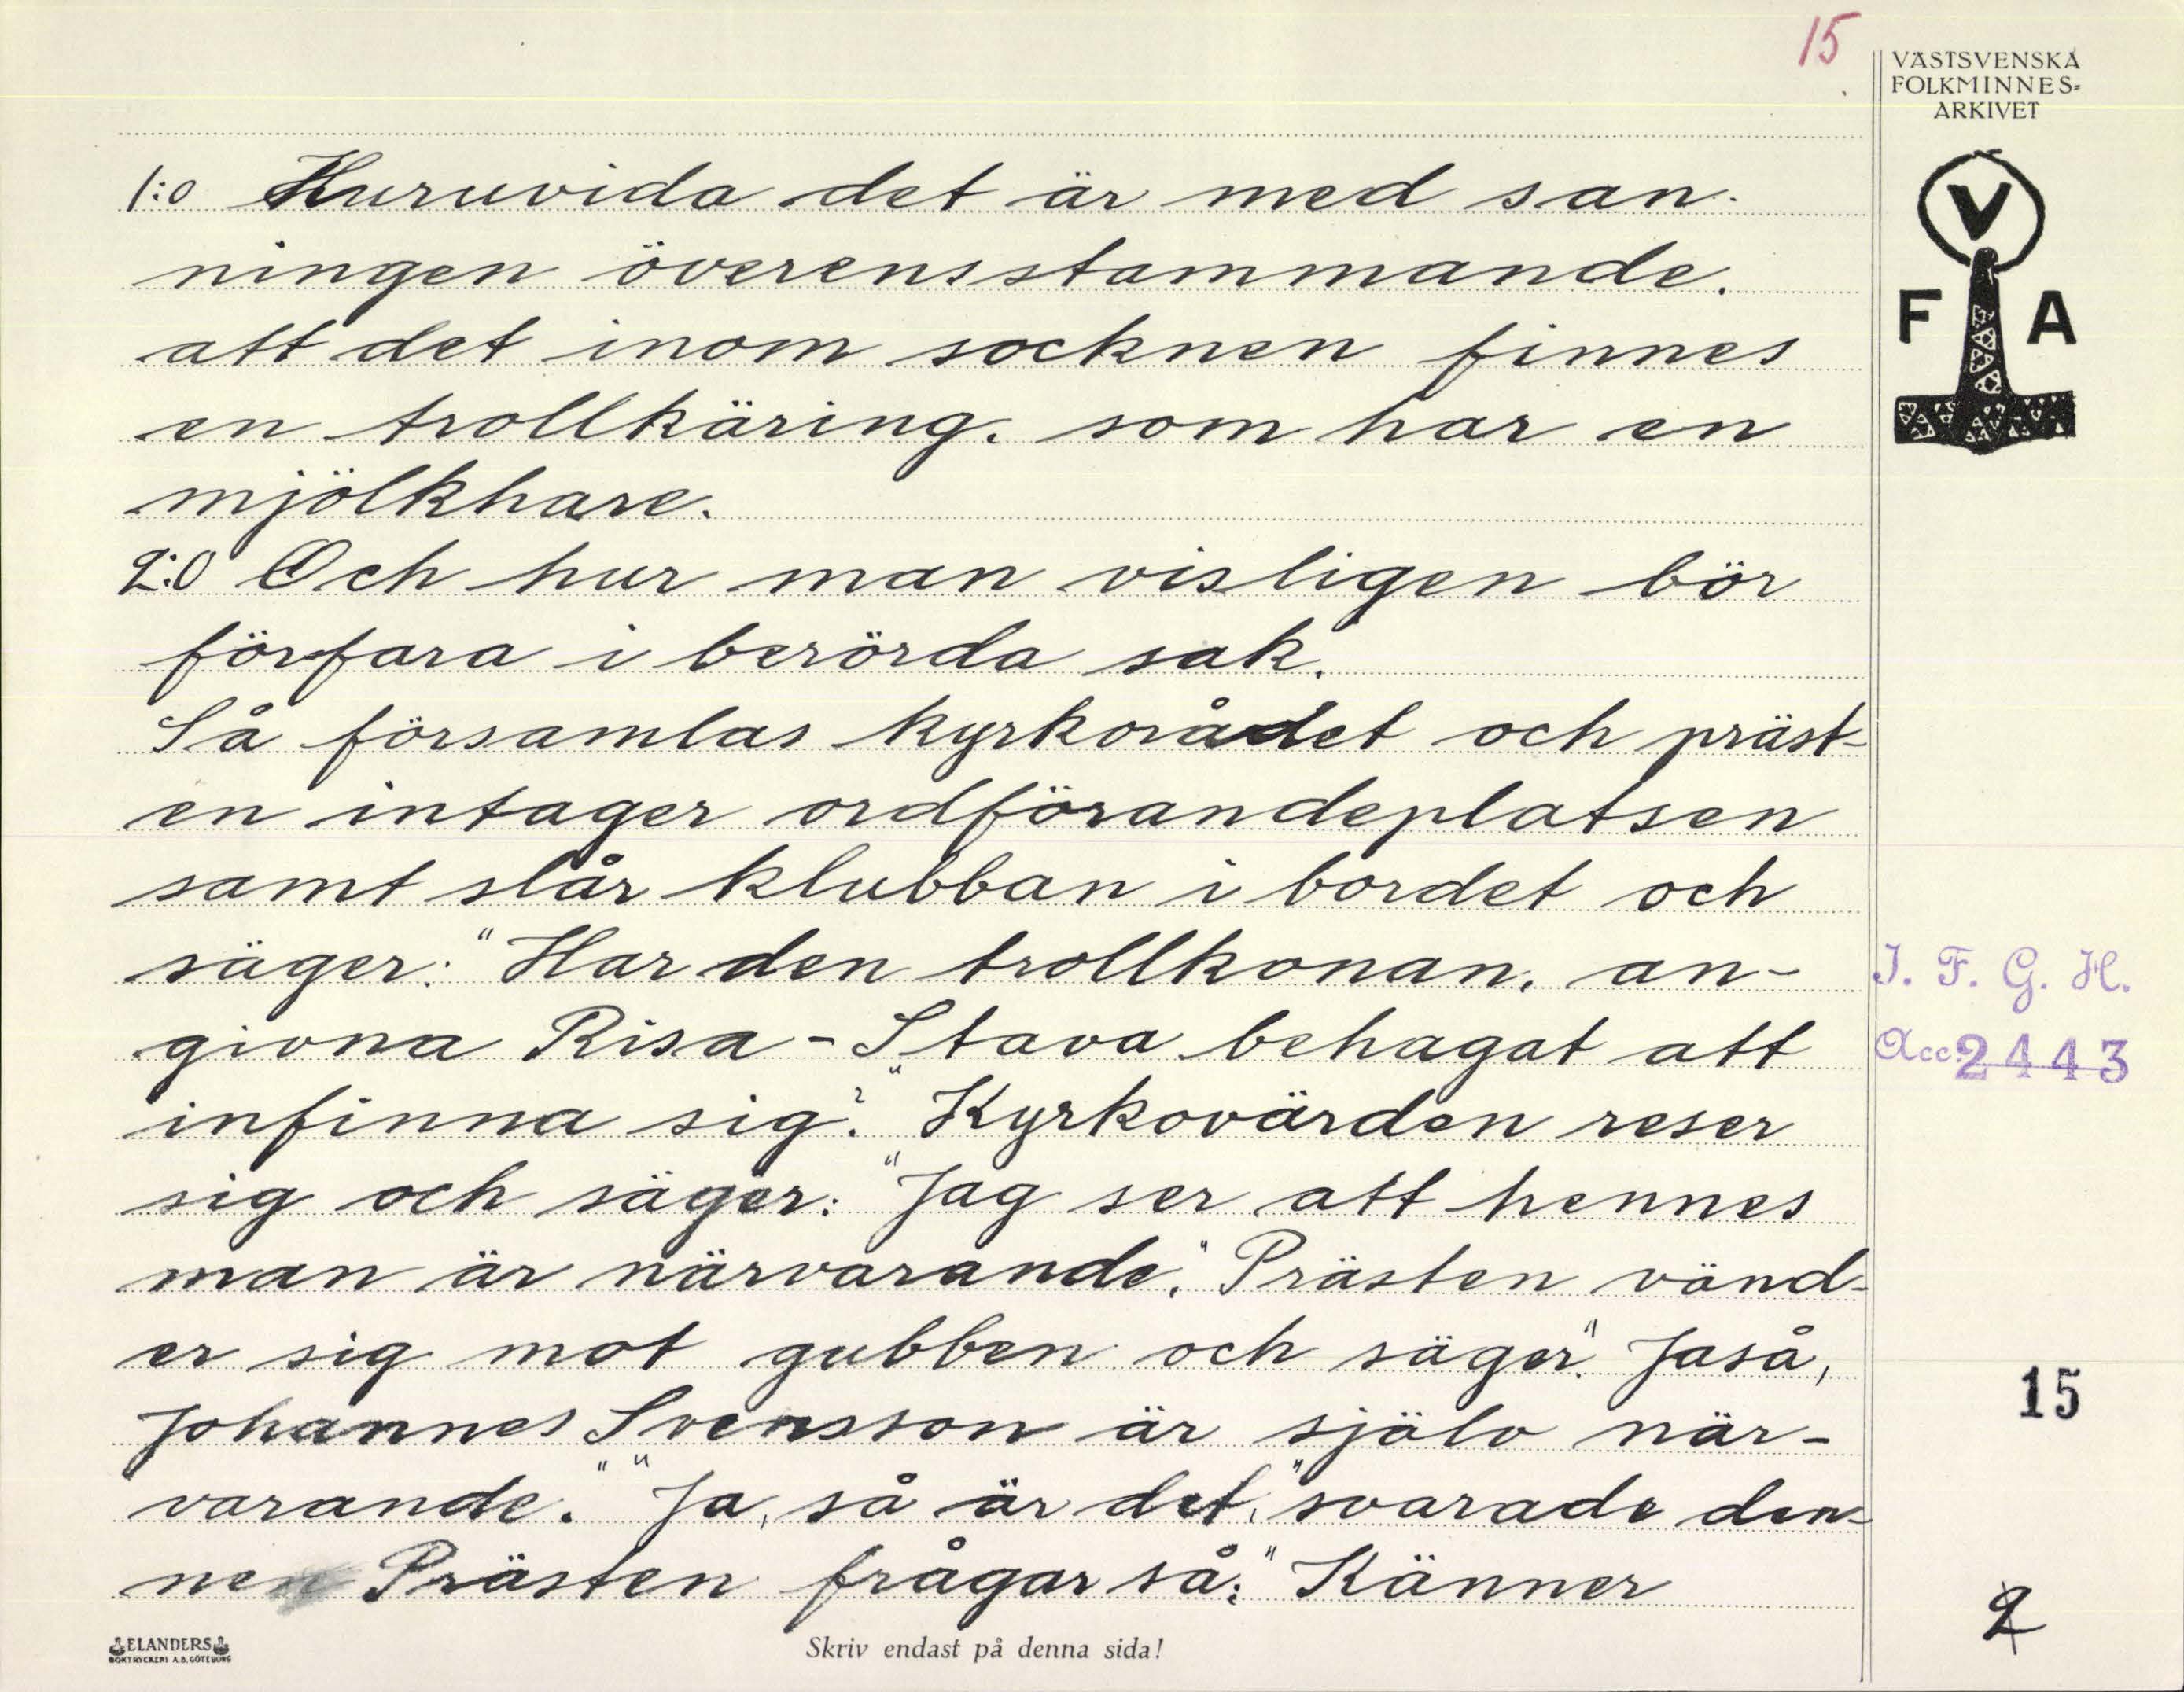 15
VÄSTSVENSKA
FOLKMINNES-
ARKIVET
V
F A
1:o Huruvida det är med san-
ningen överensstammande.
att det inom socknen finnes
en trollkäring. som har en
mjölkhare.
2:0 Och hur man visligen bör
förfara i berörda sak.
Så församlas kyrkorådet och präst-
en intager ordförandeplatsen
samt slår klubban i bordet och
säger: "Har den trollkonan, an-
givna Risa-Stava behagat att
infinna sig?" Kyrkovärden reser
sig och säger: "Jag ser att hennes
man är närvarande." Prästen vänd-
er sig mot gubben och säger: "Jaså,
Johannes Svensson är själv när-
varande." "Ja, så är det," svarade den-
nen Prästen frågar så: "Känner
I. F. G. H.
Acc. 2443
15
2
ELANDERS
BOKTRYCKERI A.B. GÖTEBORG
Skriv endast på denna sida!